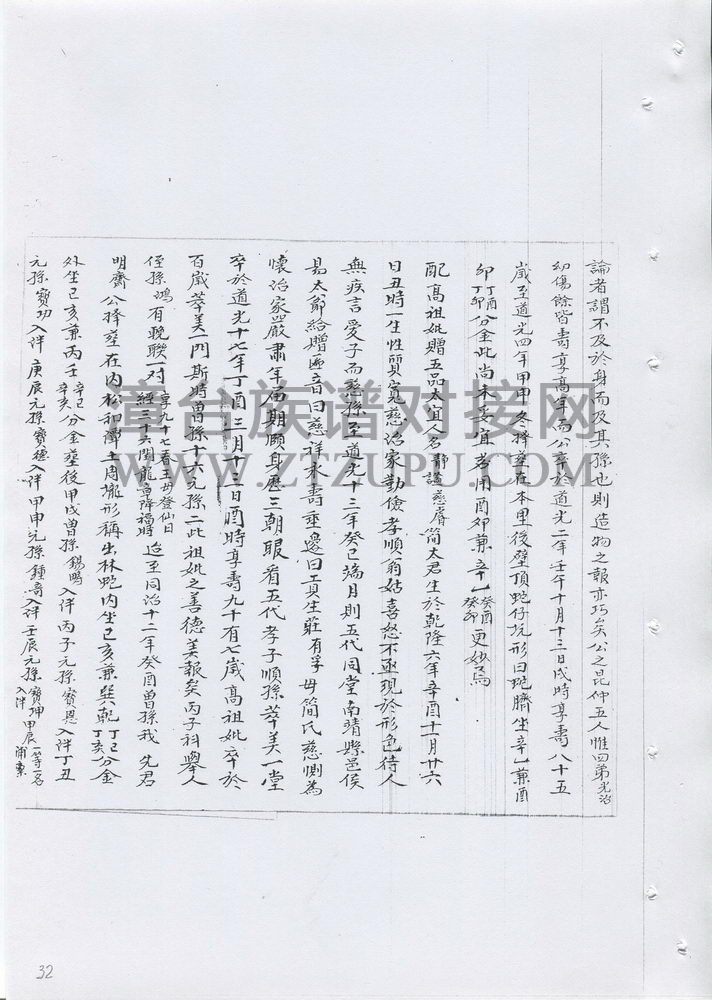 論者謂不及於身而及其孫也則造物之報亦巧矣公之昆仲五人惟四弟光治
幼傷餘皆壽享高年而公卒於道光二年壬午十月十三日戌時享壽八十五
歲至道光四年甲申冬擇葬在本里後壁頂蛇仔坑形曰蛇臍坐辛乙兼酉
卯丁酉丁卯分金此尚未妥宜若用酉卯兼辛乙癸酉癸卯更妙焉
配高祖妣贈五品太宜人名靜謚慈睿簡太君生於乾隆六年辛酉十一月廿六
日丑時一生性質寬慈治家勤儉孝順翁姑喜怒不亟現於形色待人
無疾言愛子而慈孫至道光十三年癸巳端月則五代同堂南靖縣邑侯
易太爺給贈匾音曰慈祥永壽垂邊曰貢生莊有孚母簡氏慈惻為
懷治家嚴肅年屆期頤身歷三朝眼看五代孝子順孫萃美一堂
卒於道光十七年丁酉三月十三日酉時享壽九十有七歲高祖妣卒於
百歲萃美一門斯時曾孫十六元孫二此祖妣之善德美報矣丙子科舉人
侄孫鴻有晚聯一對享九十七看王母登仙日經三十六聞龍章降福時迨至同治十二年癸酉曾孫我先君
明齋公擇葬在內松和潭土周壠形稱出林蛇內坐巳亥兼巽乾丁巳丁亥分金
外坐巳亥兼丙壬辛巳辛亥分金葬後甲戌曾孫錫賜入泮丙子元孫寶恩入泮丁丑
元孫寶功入泮庚辰元孫寶德入泮甲申元孫鍾奇入泮壬辰元孫寶珅入泮甲辰一等一名補稟
章台族谱对接网
WWW.ZTZUPU.COM
32